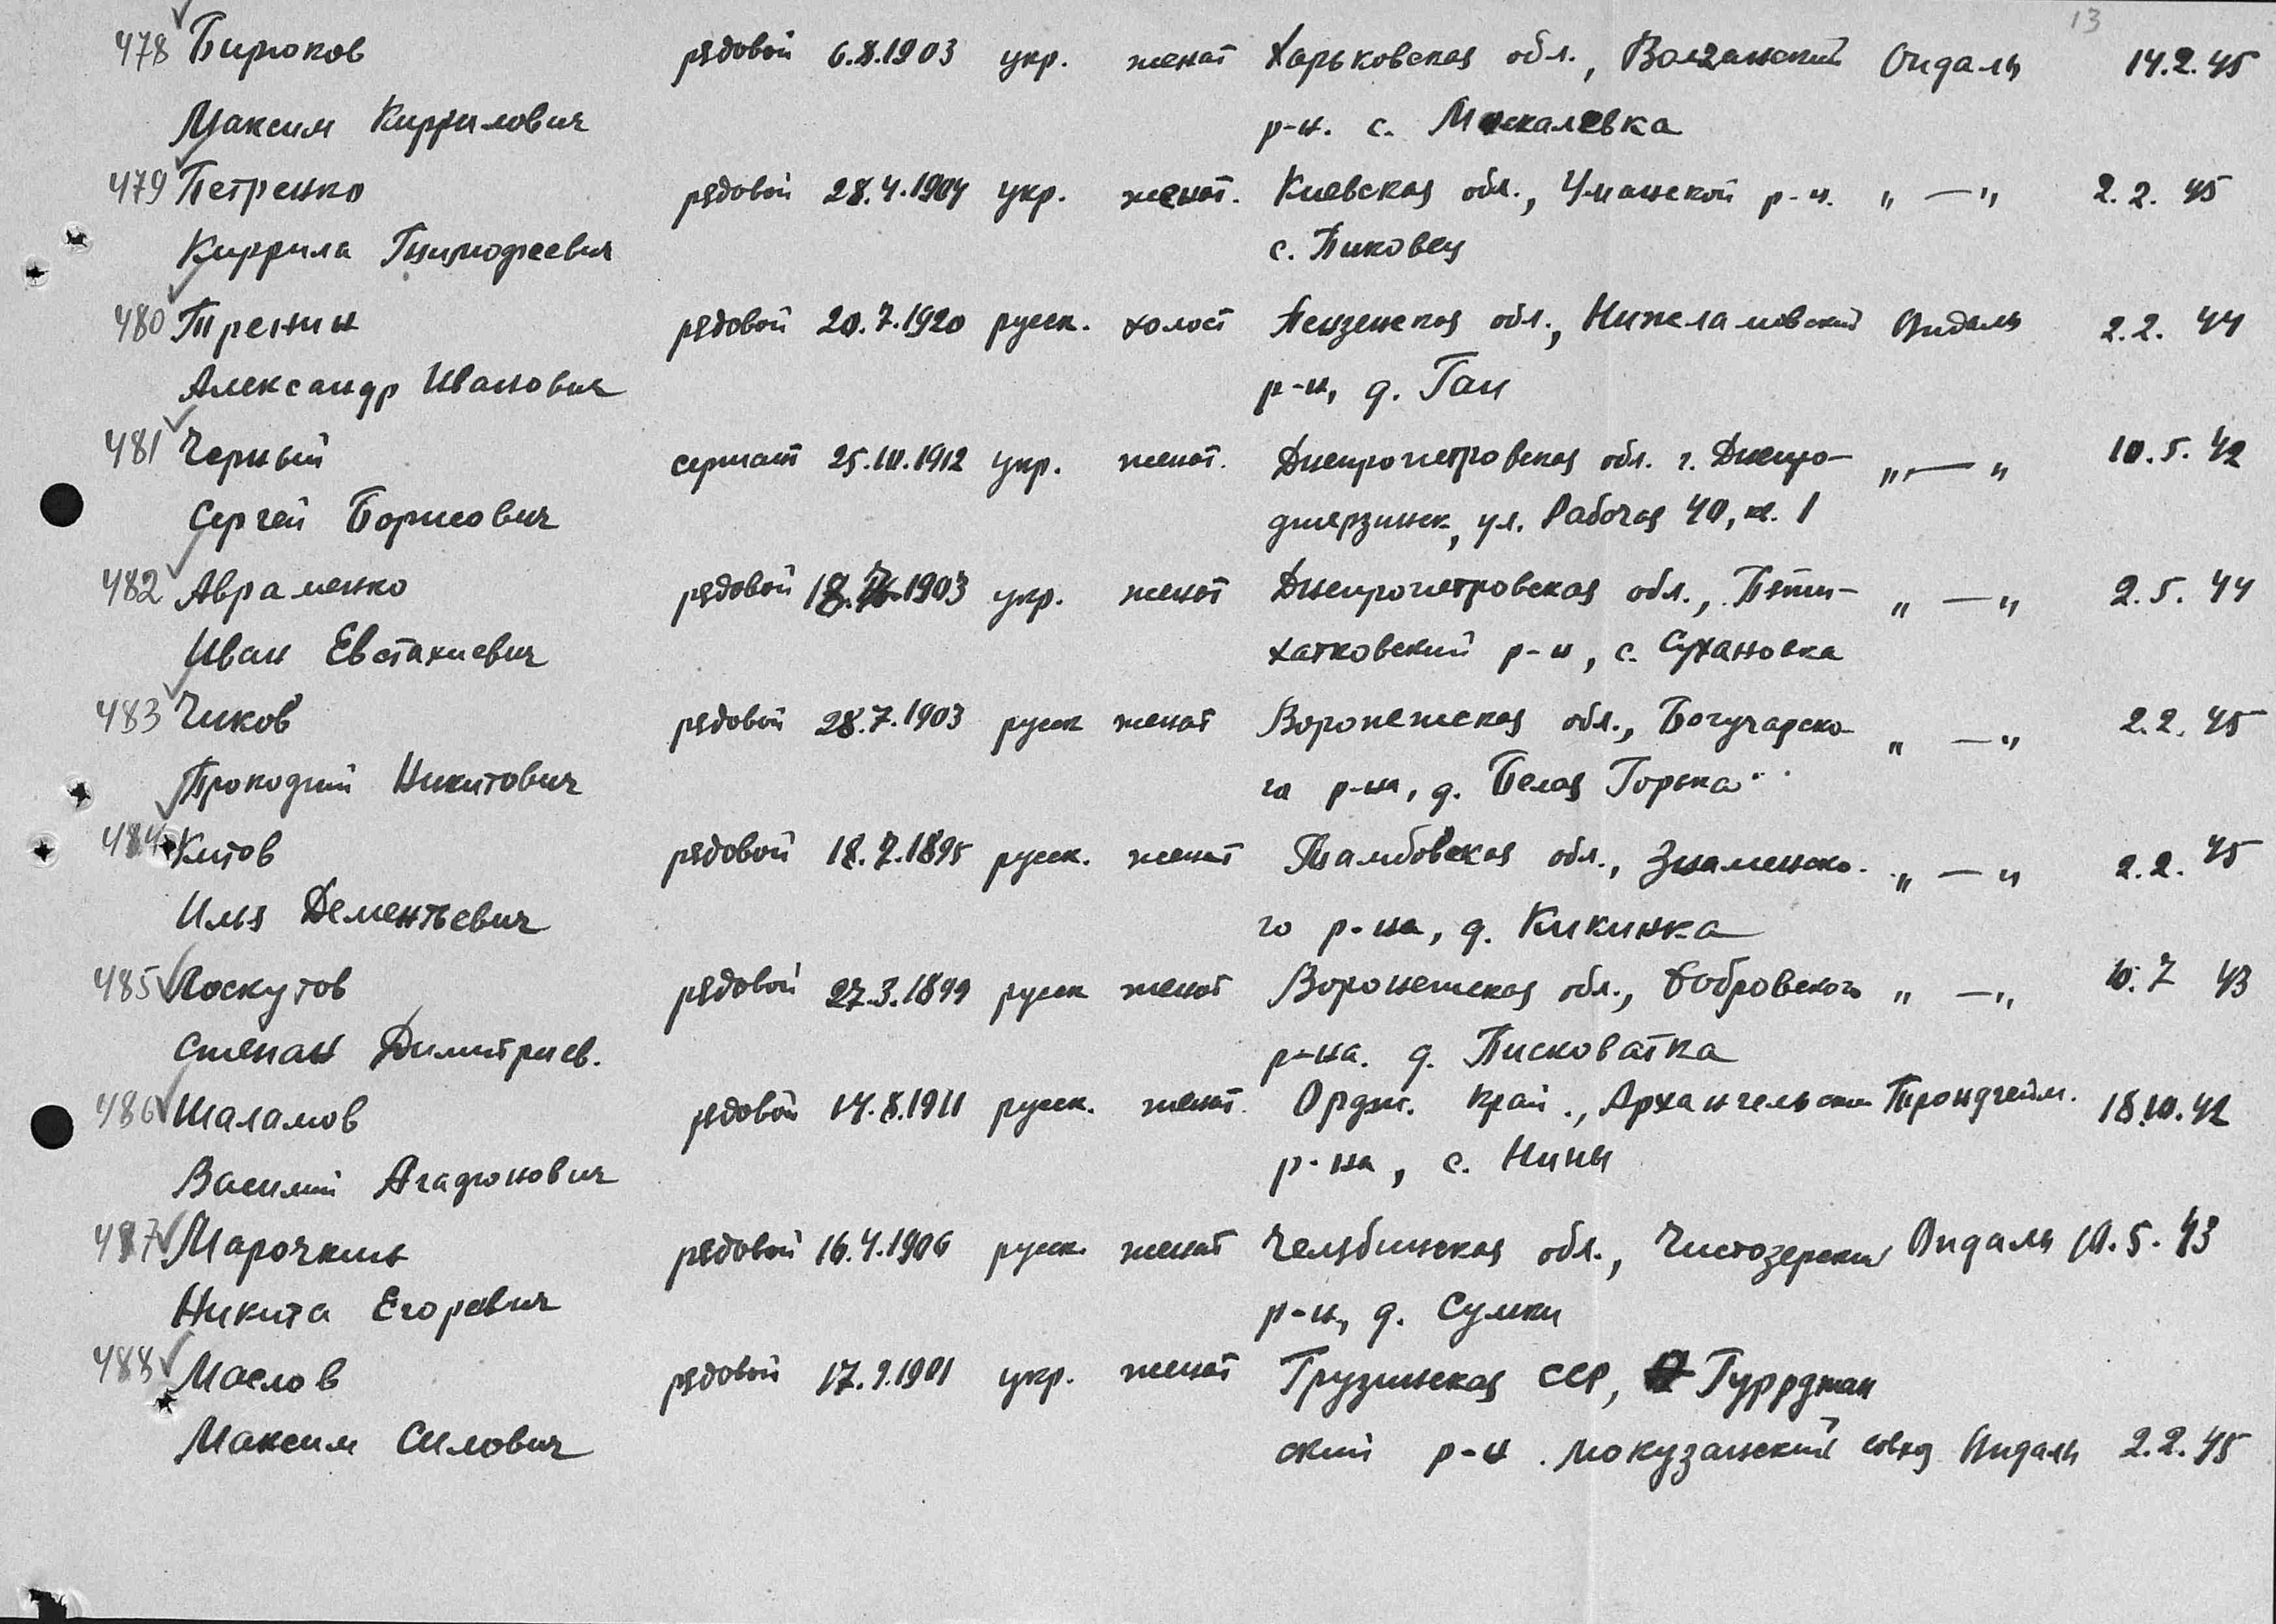 13
478 Бирюков рядовой 6.8.1903 укр. женат Харьковская обл., Волчанский Опдаль 14.2.45
Максим Киррилович р-н. с. Москалевка
479 Петренко рядовой 28.4.1904 укр. женат. Киевская обл., Уманской р-н. „ — „ 2.2.45
Киррила Тимофеевич с. Пиковец
480 Тренин рядовой 20.7.1920 русск. холост Пензенская обл., Нижеламовский Опдаль 2.2.44
Александр Иванович р-н, д. Ган
481 Черный сержант 25.10.1912 укр. женат. Днепропетровская обл. г. Днепро- „ — „ 10.5.42
Сергей Борисович джерзинск, ул. Рабочая 40, к. 1
482 Авраменко рядовой 1903 укр. женат Днепропетровская обл., Пяти- „ — „ 2.5.44
Иван Евстахиевич хатковский р-н, с. Сухановка
483 Чиков рядовой 28.7.1903 русск женат Воронежская обл., Богучарско- „ — „ 2.2.45
Прокофий Никитович га р-на, д. Белая Горька
484 Китов рядовой 18.7.1895 русск. женат Тамбовская обл., Знаменско- „ — „ 2.2.45
Илья Дементьевич го р-на, д. Кикинка
485 Лоскутов рядовой 27.3.1899 русск женат Воронежская обл., Бобровского „ — „ 10.7 43
Степан Димитриев. р-на. д. Писковатка
486 Шаламов рядовой 14.8.1911 русск. женат. Ордж. край., Архангельский Трондгейм. 18.10.42
Василий Агафонович р-на, с. Нины
487 Марочкин рядовой 16.4.1906 русск. женат Челябинская обл., Чистозерский Опдаль 10.5.43
Никита Егоревич р-н, д. Сумки
488 Маслов рядовой 17.9.1901 укр. женат Грузинская ССР, Гуррджан
Максим Силович ский р-н. Мокузанский совхоз Опдаль 2.2.45